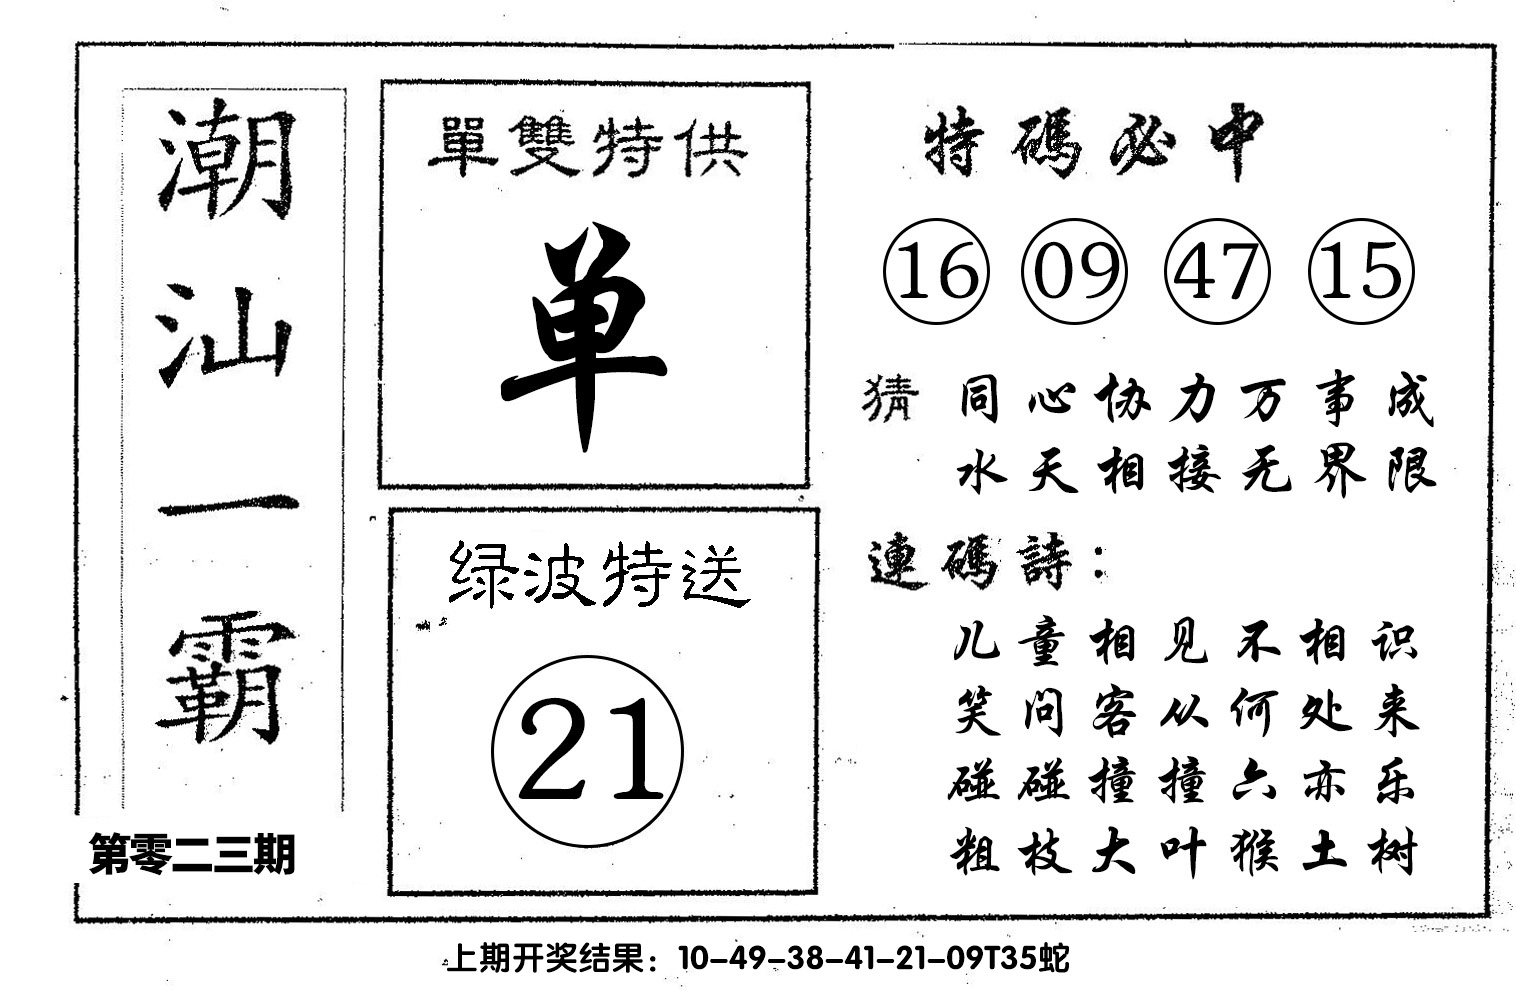 潮汕一霸
第零二三期
單雙特供
单
绿波特送
21
特碼必中
16 09 47 15
猜 同心协力万事成
水天相接无界限
連碼詩：
儿童相见不相识
笑问客从何处来
碰碰撞撞六亦乐
粗枝大叶猴土树
上期开奖结果：10-49-38-41-21-09T35蛇